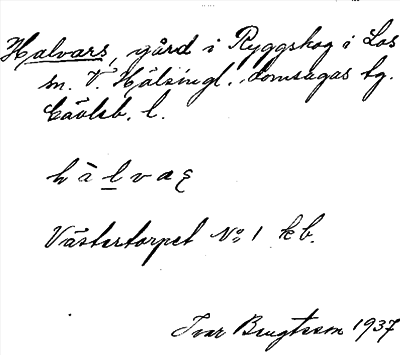 Halvars, gård i Ryggskog i Los
sn. V. Hälsingl. domsagas tg.
Gävleb. l.
hàl̠vaʂ
Västertorpet No 1 kb.
Ivar Bengtsson 1937